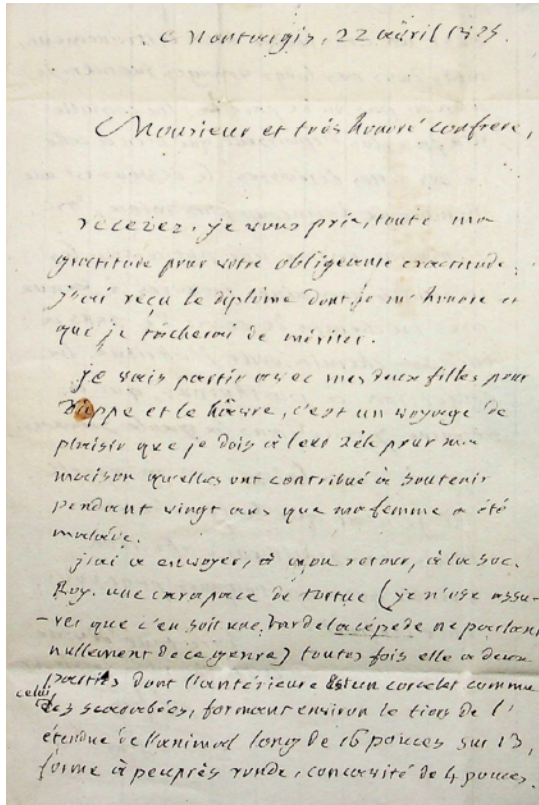 Montargis, 22 avril 1825.
Monsieur et très honoré confrere,
recevez, je vous prie, toute ma
gratitude pour votre obligeante exactitude;
j'ai reçu le diplôme dont je m'honore et
que je tâcherai de mériter.
je vais partir avec mes deux filles pour
Dieppe et le hâvre, c'est un voyage de
plaisir que je dois à leur zèle pour ma
maison qu'elles ont contribué à soutenir
pendant vingt ans que ma femme a été
malade.
j'ai a envoyer, à mon retour, à la soc.
Roy. une carapace de tortue (je n'ose assu-
-rer que c'en soit une, de lacépède ne parlant
nullement de ce genre) toutes fois elle a deux
parties dont l'antérieure est un corcelet comme
celui des scarabées, formant environ le tiers de l'
étendue de l'animal long de 16 pouces sur 13,
forme à peuprès ronde, concavité de 4 pouces.